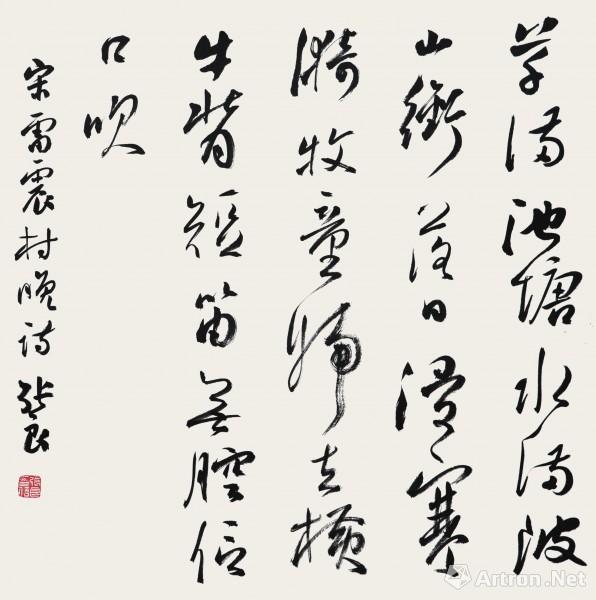 草滿池塘水滿陂
山銜落日浸寒
漪牧童歸去橫
牛背短笛無腔信
口吹
宋雷震村晚詩
Artron.Net